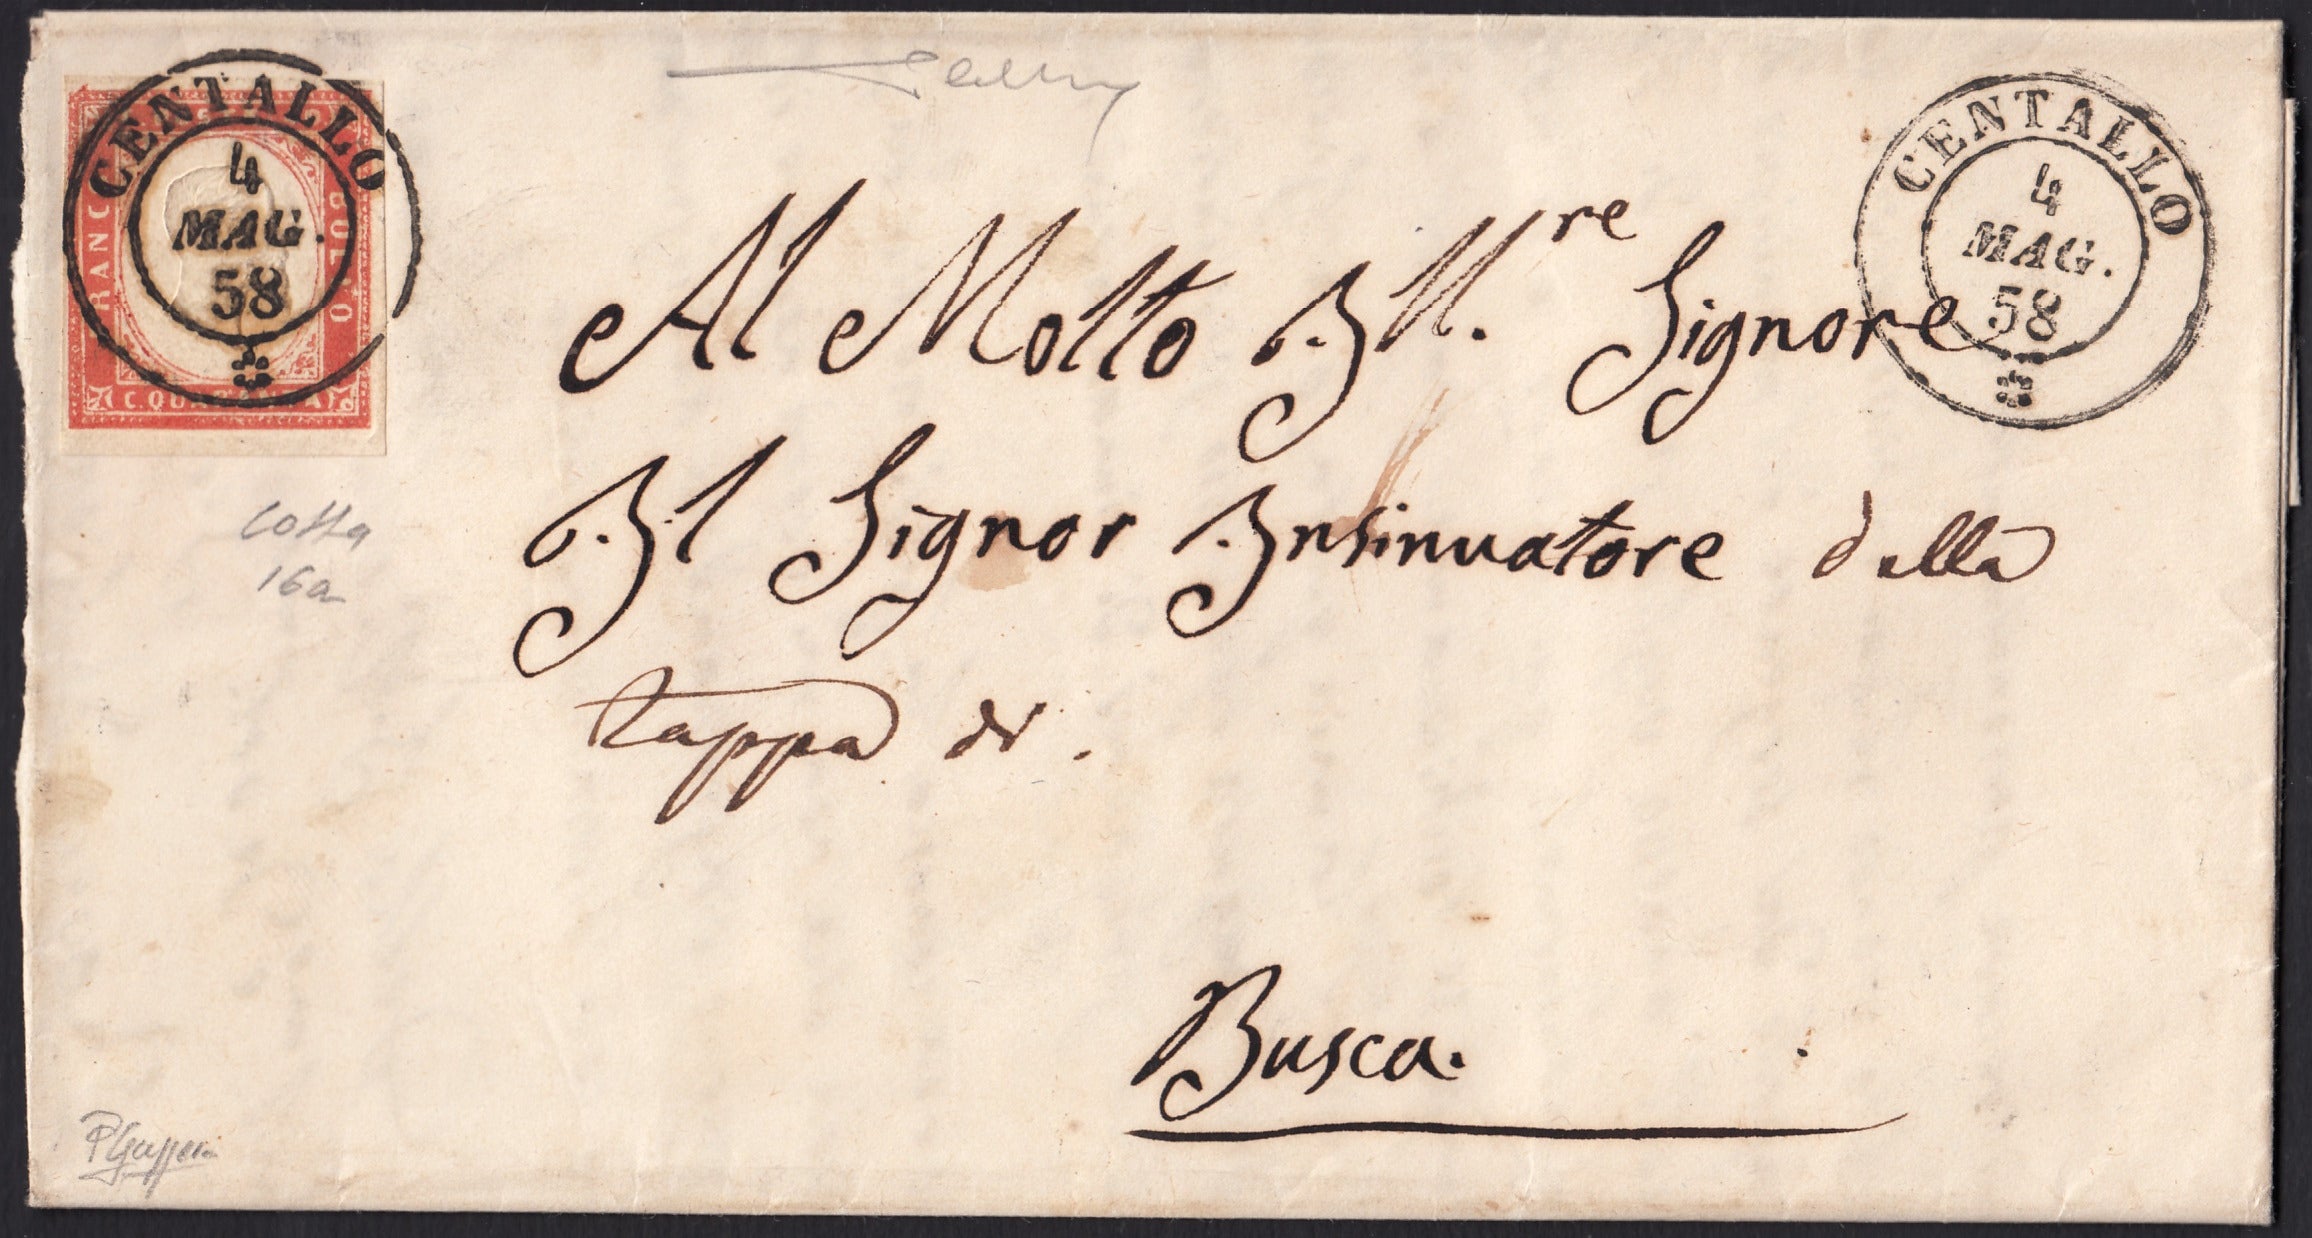 CENTALLO
4
MAG.
58
FRANCO BOLLO
C. QUARANTA
CENTALLO
4
MAG.
58
Al Molto Ill.re Signore
Il Signor Insinuatore della
tappa di.
Busca.
Cotta
16a